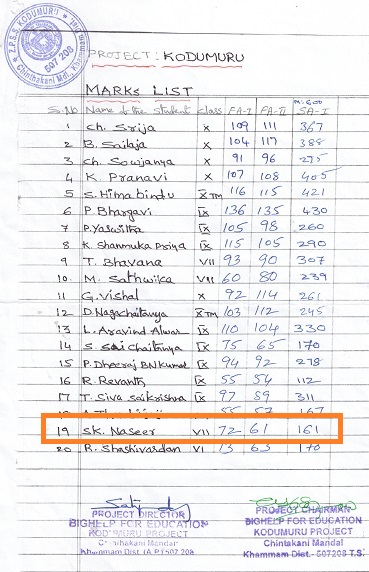 Z.P.S.S. KODUMURU
Chinthakani Mdl., Khammam
507 208
PROJECT: KODUMURU
MARKS LIST
M:600
S.No Name of the student class FA-I FA-II SA-I
1 Ch. Srija X 109 111 367
2 B. Sailaja X 104 117 388
3 Ch. Soujanya X 91 96 295
4 K. Pranavi X 107 108 405
5 S. Himabindu X TM 116 115 421
6 P. Bhargavi IX 136 135 430
7 P. Yaswitha IX 105 98 260
8 K. Shanmuka Priya IX 115 105 290
9 T. Bhavana VII 93 90 307
10. M. Sathwika VII 60 80 239
11 G. Vishal X 92 114 261
12 D. Nagachaitanya X TM 103 112 245
13 L. Aravind Alwar IX 110 104 330
14 S. Sai Chaitanya IX 75 65 170
15 P. Dheeraj B.N Kumar IX 94 92 278
16 R. Revanth IX 55 54 112
17 T. Siva Sakrishna IX 97 89 311
18 55 57 167
19 Sk. Naseer VII 72 61 161
20 R. Shashivardan VI 73 63 170
PROJECT DIRECTOR
BIGHELP FOR EDUCATION
KODUMURU PROJECT
Chinthakani Mandal
Khammam Dist. (A.P) 507 208
PROJECT CHAIRMAN
BIGHELP FOR EDUCATION
KODUMURU PROJECT
Chintakani Mandal
Khammam Dist.- 507208 T.S.